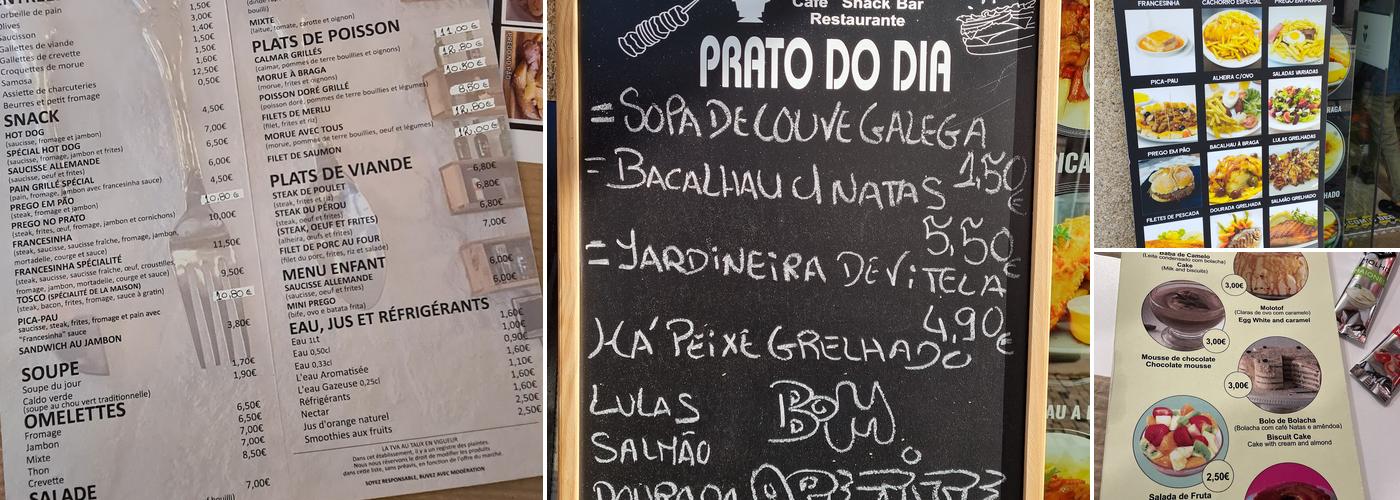 Corbeille de pain
1,50€
Olives
3,00€
Saucisson
1,40€
Gallettes de viande
1,50€
Gallettes de crevette
1,60€
Croquettes de morue
Samosa
12,50€
Assiette de charcuteries
0,50€
Beurres et petit fromage
4,50€
SNACK
HOT DOG
7,00€
(saucisse, fromage et jambon)
SPÉCIAL HOT DOG
6,50€
(saucisse, fromage, jambon et frites)
SAUCISSE ALLEMANDE
6,00€
(saucisse, oeuf et frites)
PAIN GRILLÉ SPÉCIAL
4,50€
(pain, fromage, jambon avec francesinha sauce)
PREGO EM PÃO
10.80€
(steak, fromage et jambon)
PREGO NO PRATO
10,00€
(steak, oeuf, fromage, jambon et cornichons)
FRANCESINHA
(steak, saucisse, saucisse fraîche, fromage, jambon,
mortadelle, courge et sauce)
11,50€
FRANCESINHA SPÉCIALITÉ
(steak, saucisse, saucisse fraîche, œuf, croustilles,
fromage, jambon, mortadelle, courge et sauce)
9,50€
TOSCO (SPÉCIALITÉ DE LA MAISON)
(steak, bacon, frites, fromage, sauce à gratin)
10.80€
PICA-PAU
saucisse, steak, frites, fromage et pain avec
"Francesinha" sauce
3,80€
SANDWICH AU JAMBON
SOUPE
1,70€
Soupe du jour
1,90€
Caldo verde
(soupe au chou vert traditionnelle)
OMELETTES
6,50€
Fromage
6,50€
Jambon
7,00€
Mixte
7,00€
Thon
8,50€
Crevette
7,00€
SALADE
bouilli)
MIXTE
(laitue, tomate, carotte et oignon)
PLATS DE POISSON
11.00€
CALMAR GRILLÉS
12.80€
(calmar, pommes de terre bouillies et oignons)
MORUE À BRAGA
10.80€
(morue, frites et oignons)
POISSON DORÉ GRILLÉ
8.80€
(poisson doré, pommes de terre bouillies et légumes)
FILETS DE MERLU
12.80€
(filet, frites et riz)
MORUE AVEC TOUS
12.00€
(morue, pommes de terre bouillies, oeuf et légumes)
FILET DE SAUMON
PLATS DE VIANDE
6,80€
STEAK DE POULET
(steak, frites et riz)
6,80€
STEAK DU PÉROU
(steak, oeuf et frites)
6,80€
(STEAK, OEUF ET FRITES)
(alheira, œufs et frites)
7,00€
FILET DE PORC AU FOUR
(filet du porc, frites, riz et salade)
MENU ENFANT
6,00€
SAUCISSE ALLEMANDE
(saucisse, oeuf et frites)
6,00€
MINI PREGO
(bife, ovo e batata frita)
EAU, JUS ET RÉFRIGÉRANTS
Eau 1Lt
1,60€
Eau 0,50cl
1,00€
Eau 0,33cl
0,90€
L'eau Aromatisée
1,60€
L'eau Gazeuse 0,25cl
1,10€
Réfrigérants
1,60€
Nectar
1,60€
Jus d'orange naturel
2,50€
Smoothies aux fruits
2,50€
LA TVA AU TAUX EN VIGUEUR
Dans cet établissement, il y a un registre des plaintes.
Nous nous réservons le droit de modifier les produits
dans cette liste, sans préavis, en fonction de l'offre du marché.
SOYEZ RESPONSABLE, BUVEZ AVEC MODÉRATION
Café Snack Bar
Restaurante
PRATO DO DIA
= SOPA DE COUVE GALEGA
1,50
€
= BACALHAU C/ NATAS
5,50
€
= JARDINEIRA DE VITELA
4,90
€
HÁ PEIXE GRELHADO
LULAS
BOM
SALMÃO
DOURADA
APETITE
FRANCESINHA
CACHORRO ESPECIAL
PREGO EM PRATO
PICA-PAU
ALHEIRA C/OVO
SALADAS VARIADAS
PREGO EM PÃO
BACALHAU À BRAGA
LULAS GRELHADAS
FILETES DE PESCADA
DOURADA GRELHADA
SALMÃO GRELHADO
Baba de Camelo
(Leite condensado com bolacha)
Cake
(Milk and biscuits)
3,00€
Molotof
(Claras de ovo com caramelo)
Egg White and caramel
3,00€
Mousse de chocolate
Chocolate mousse
3,00€
Bolo de Bolacha
(Bolacha com café Natas e amêndoa)
Biscuit Cake
Cake with cream and almond
2,50€
Salada de Fruta